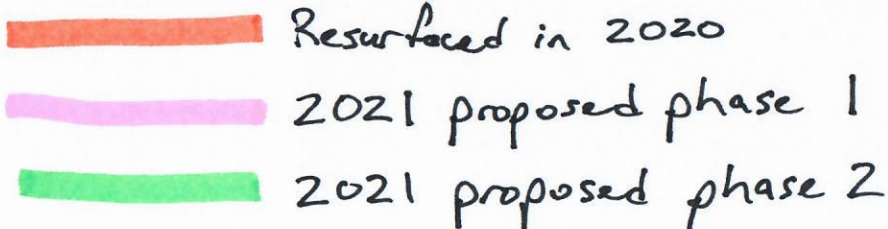 Resurfaced in 2020
2021 proposed phase 1
2021 proposed phase 2